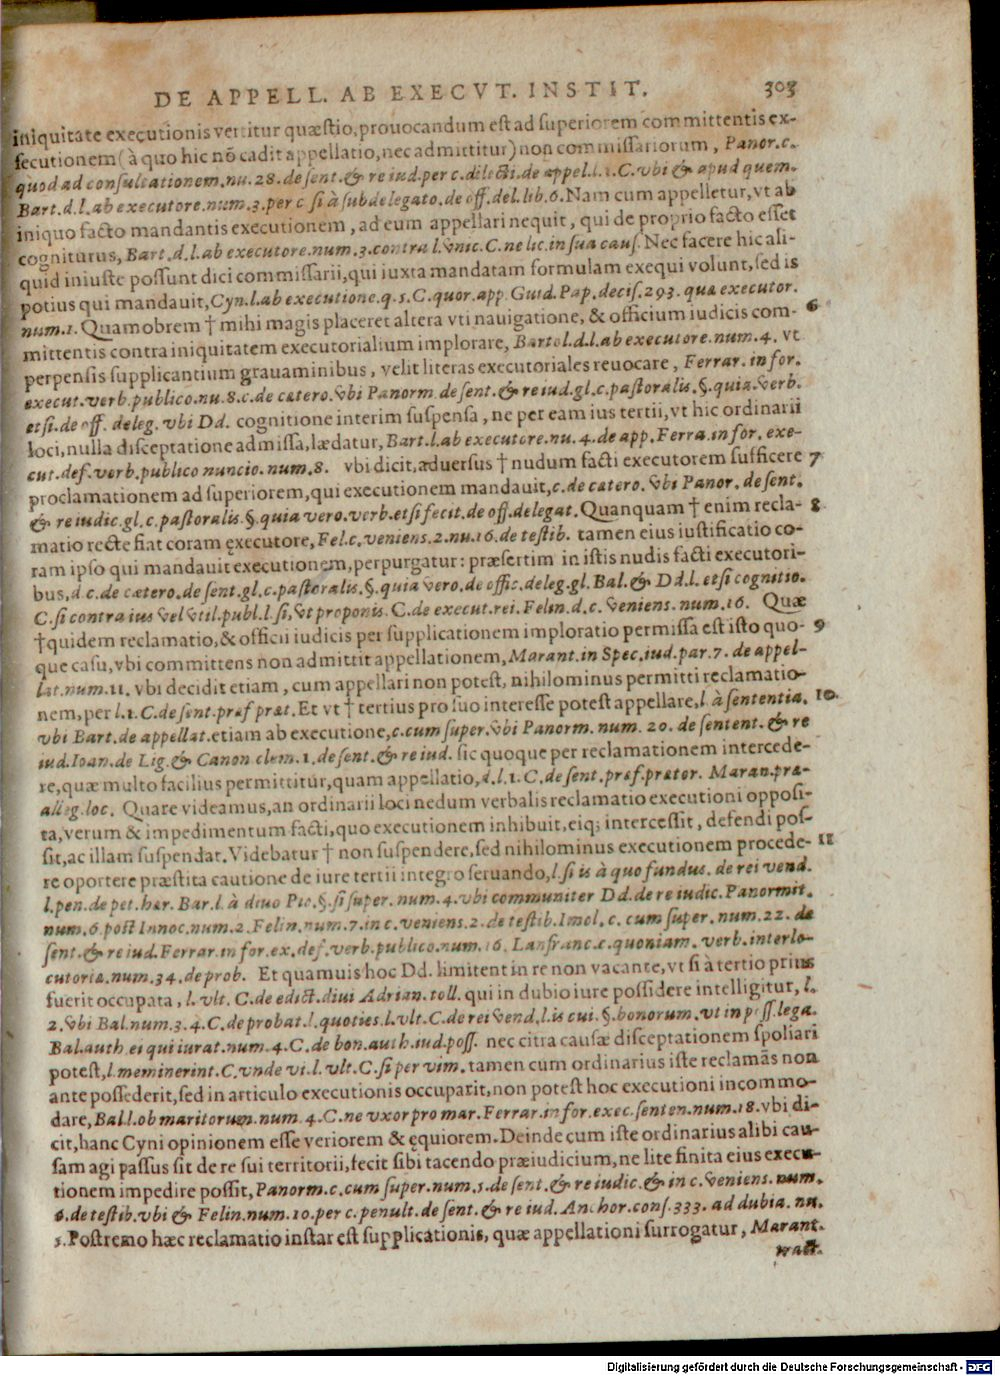 DE APPELL. AB EXECVT. INSTIT. 303
iniquitate executionis vertitur quæstio, prouocandum est ad superiorem committentis ex-
secutionem (à quo hic nõ cadit appellatio, nec admittitur) non commissariorum, Panor. c.
quod ad consultationem. nu. 28. de sent. & re iud. per c. dilecti. de appel. l. 1. C. vbi & apud quem.
Bart. d. l. ab executore. num. 3. per c si à subdelegato. de off. del. lib. 6. Nam cum appelletur, vt ab
iniquo facto mandantis executionem, ad eum appellari nequit, qui de proprio facto esset
cogniturus, Bart. d. l. ab executore. num. 3. contra l. vnic. C. ne lic. in sua caus. Nec facere hic ali-
quid iniuste possunt dici commissarii, qui iuxta mandatam formulam exequi volunt, sed is
potius qui mandauit, Cyn. l. ab executione. q. 5. C. quor. app. Guid. Pap. decis. 293. qua executor.
num. 1. Quamobrem † mihi magis placeret altera vti nauigatione, & officium iudicis com- 6
mittentis contra iniquitatem executorialium implorare, Bartol. d. l. ab executore. num. 4. vt
perpensis supplicantium grauaminibus, velit literas executoriales reuocare, Ferrar. in for.
execut. verb. publico. nu. 8. c. de cætero. vbi Panorm. de sent. & re iud. gl. c. pastoralis. §. quia. verb.
etsi. de off. deleg. vbi Dd. cognitione interim suspensa, ne per eam ius tertii, vt hic ordinarii
loci, nulla disceptatione admissa, lædatur, Bart. l. ab executore. nu. 4. de app. Ferra. in for. exe-
cut. def. verb. publico nuncio. num. 8. vbi dicit, æduersus † nudum facti executorem sufficere 7
proclamationem ad superiorem, qui executionem mandauit, c. de cætero. vbi Panor. de sent.
& re iudic. gl. c. pastoralis. §. quia vero. verb. etsi fecit. de off. delegat. Quanquam † enim recla- 8
matio recte fiat coram ęxecutore, Fel. c. veniens. 2. nu. 16. de testib. tamen eius iustificatio co-
ram ipso qui mandauit executionem, perpurgatur: præsertim in istis nudis facti executori-
bus, d. c. de cætero. de sent. gl. c. pastoralis. §. quia vero. de offic. deleg. gl. Bal. & Dd. l. etsi cognitio.
C. si contra ius vel vtil. publ. l. si, vt proponis. C. de execut. rei. Felin. d. c. veniens. num. 16. Quæ
†quidem reclamatio, & officii iudicis per supplicationem imploratio permissa est isto quo- 9
que casu, vbi committens non admittit appellationem, Marant. in Spec. iud. par. 7. de appel-
lat. num. 11. vbi decidit etiam, cum appellari non potest, nihilominus permitti reclamatio-
nem, per l. 1. C. de sent. præf præt. Et vt † tertius pro suo interesse potest appellare, l à sententia. 10.
vbi Bart. de appellat. etiam ab executione, c. cum super. vbi Panorm. num. 20. de sentent. & re
iud. Ioan. de Lig. & Canon clem. 1. de sent. & re iud. sic quoque per reclamationem intercede-
re, quæ multo facilius permittitur, quam appellatio, d. l. 1. C. de sent. præf. prætor. Maran. præ-
alleg. loc. Quare videamus, an ordinarii loci nedum verbalis reclamatio executioni opposi-
ta, verum & impedimentum facti, quo executionem inhibuit, eiq; intercessit, defendi pos-
sit, ac illam suspendat. Videbatur † non suspendere, sed nihilominus executionem procede- 11
re oportere præstita cautione de iure tertii integro seruando, l. si is à quo fundus. de rei vend.
l. pen. de pet. hær. Bar. l. à diuo Pio. §. si super. num. 4. vbi communiter Dd. de re iudic. Panormit.
num. 6. post Innoc. num. 2. Felin. num. 7. in c. veniens. 2. de testib. Imol. c. cum super. num. 22. de
sent. & re iud. Ferrar. in for. ex. def. verb. publico. num. 16. Lanfranc. c. quoniam. verb. interlo-
cutoria. num. 34. de prob. Et quamuis hoc Dd. limitent in re non vacante, vt si à tertio prius
fuerit occupata, l. vlt. C. de edict. diui Adrian. toll. qui in dubio iure possidere intelligitur, l.
2. vbi Bal. num. 3. 4. C. de probat. l. quoties. l. vlt. C. de rei vend, l. is cui. §. bonorum. vt in poss. lega.
Bal. auth. ei qui iurat. num. 4. C. de bon. auth. iud. poss. nec citra causæ disceptationem spoliari
potest, l. meminerint. C. vnde vi. l. vlt. C. si per vim. tamen cum ordinarius iste reclamãs non
ante possederit, sed in articulo executionis occuparit, non potest hoc executioni incommo-
dare, Bal. l. ob maritorum. num. 4. C. ne vxor pro mar. Ferrar. in for. exec. senten. num. 18. vbi di-
cit, hanc Cyni opinionem esse veriorem & ęquiorem. Deinde cum iste ordinarius alibi cau-
sam agi passus sit de re sui territorii, fecit sibi tacendo præiudicium, ne lite finita eius execu-
tionem impedire possit, Panorm. c. cum super. num. 5. de sent. & re iudic. & in c. veniens. num.
6. de testib. vbi & Felin. num. 10. per c. penult. de sent. & re iud. Anchor. cons. 333. ad dubia. nu.
3. Postremo hæc reclamatio instar est supplicationis, quæ appellationi surrogatur, Marant.
Digitalisierung gefördert durch die Deutsche Forschungsgemeinschaft - DFG